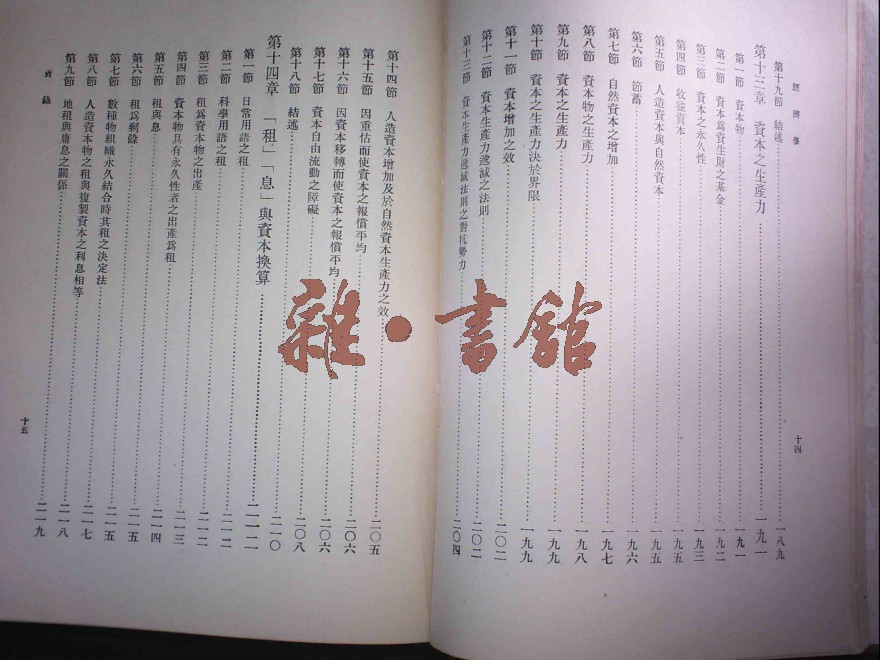 經濟學
第十九節 結述 一八九
第十三章 資本之生產力 一九一
第一節 資本物 一九一
第二節 資本爲資生財之基金 一九二
第三節 資本之永久性 一九三
第四節 收益資本 一九五
第五節 人造資本與自然資本 一九五
第六節 節蓄 一九六
第七節 自然資本之增加 一九七
第八節 資本物之生產力 一九八
第九節 資本之生產力 一九九
第十節 資本之生產力決於界限 一九九
第十一節 資本增加之效 二〇二
第十二節 資本生產力遞減之法則 二〇二
第十三節 資本生產力遞減法則之對抗勢力 二〇四
十四
第十四節 人造資本增加及於自然資本生產力之效 二〇五
第十五節 因重估而使資本之報償平均 二〇六
第十六節 因資本移轉而使資本之報償平均 二〇六
第十七節 資本自由流動之障礙 二〇六
第十八節 結述 二〇八
第十四章 「租」「息」與資本換算 二一〇
第一節 日常用語之租 二一二
第二節 科學用語之租 二一二
第三節 租爲資本物之出產 二一二
第四節 資本物具有永久性者之出產爲租 二一三
第五節 租與息 二一四
第六節 租爲剩餘 二一五
第七節 數種物組織永久結合時其租之決定法 二一五
第八節 人造資本物之租與複製資本之利息相等 二一七
第九節 地租與庸息之關係 二一八
二一九
目錄
十五
雜·書館